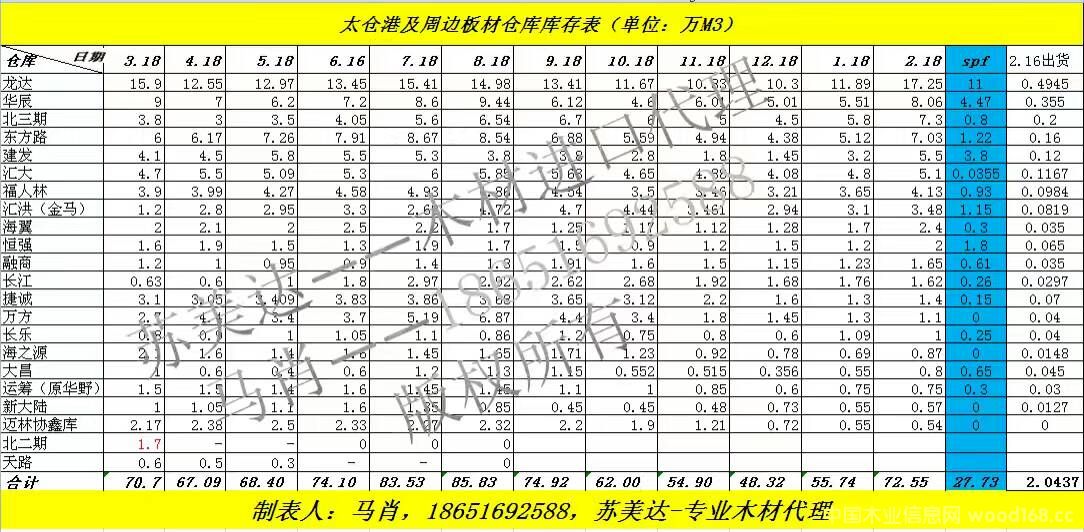 太仓港及周边板材仓库库存表（单位：万M3）
仓库 日期 3.18 4.18 5.18 6.16 7.18 8.18 9.18 10.18 11.18 12.18 1.18 2.18 spf 2.16出货
龙达 15.9 12.55 12.97 13.45 15.41 14.98 13.41 11.67 10.3 11.89 17.25 11 0.4945
华辰 9 7 6.2 7.2 8.6 9.44 6.12 4.6 6.01 5.01 5.51 8.06 4.47 0.355
北三期 3.8 3 3.5 4.05 5.6 6.54 6.7 6 5 4.5 5.8 7.3 0.8 0.2
东方路 6 6.17 7.26 7.91 8.67 8.54 6.88 5.59 4.94 4.38 5.12 7.03 1.22 0.16
建发 4.1 4.5 5.8 5.5 5.3 3.8 3.8 2.8 1.8 1.45 3.2 5.5 3.8 0.12
汇大 4.7 5.5 5.09 5.3 6 5.89 5.63 4.65 4.88 4.08 4.8 5.1 0.0355 0.1167
福人林 3.9 3.99 4.27 4.58 4.93 4.86 4.54 3.5 3.46 3.21 3.65 4.13 0.93 0.0984
汇洪（金马） 1.2 2.8 2.95 3.3 2.6 4.72 4.7 4.44 3.461 2.94 3.1 3.48 1.15 0.0819
海翼 2 2.1 2 2.5 2.2 1.7 1.25 1.17 1.12 1.28 1.7 2.4 0.3 0.035
恒强 1.6 1.9 1.5 1.3 1.9 1.7 1.9 0.9 1.2 1.5 1.2 2 1.8 0.065
融商 1.2 1 0.95 0.9 1.4 1.3 1.91 1.6 1.5 1.15 1.23 1.65 0.61 0.035
长江 0.63 0.6 1 1.8 2.97 2.92 2.62 2.68 1.92 1.68 1.76 1.62 0.26 0.0297
捷诚 3.1 3.05 3.409 3.83 3.86 3.68 3.65 3.12 2.2 1.6 1.3 1.4 0.15 0.07
万方 2.7 4.4 3.4 3.7 5.19 6.87 4.4 3.4 1.8 1.45 1.3 1.1 0 0.04
长乐 0.8 0.9 1 1.05 1.1 0.86 1.2 0.75 0.8 0.6 1.09 1 0.25 0.04
海之源 1.6 1.4 1.45 1.65 1.71 1.23 0.92 0.78 0.69 0.87 0 0.0148
大昌 1 0.6 0.4 0.6 1.2 1.3 1.15 0.552 0.515 0.356 0.55 0.8 0.65 0.045
运筹（原华野） 1.5 1.5 1.4 1.6 1.45 1.45 1.1 1 0.85 0.6 0.75 0.75 0.3 0.03
新大陆 1 1.05 1.1 1.6 1.35 0.85 0.45 0.45 0.48 0.73 0.55 0.57 0 0.0127
迈林协鑫库 2.17 2.38 2.5 2.33 2.27 2.32 2.2 1.9 1.21 0.72 0.55 0.54 0 0
北二期 1.7 - - 0 0 0
天路 0.6 0.5 0.3 - - 0
合计 70.7 67.09 68.40 74.10 83.53 85.83 74.92 62.00 54.90 48.32 55.74 72.55 27.73 2.0437
制表人：马肖，18651692588，苏美达-专业木材代理
苏美达——木材进口代理
马肖——18651692588
版权所有
中国木业信息网 wood168.cc